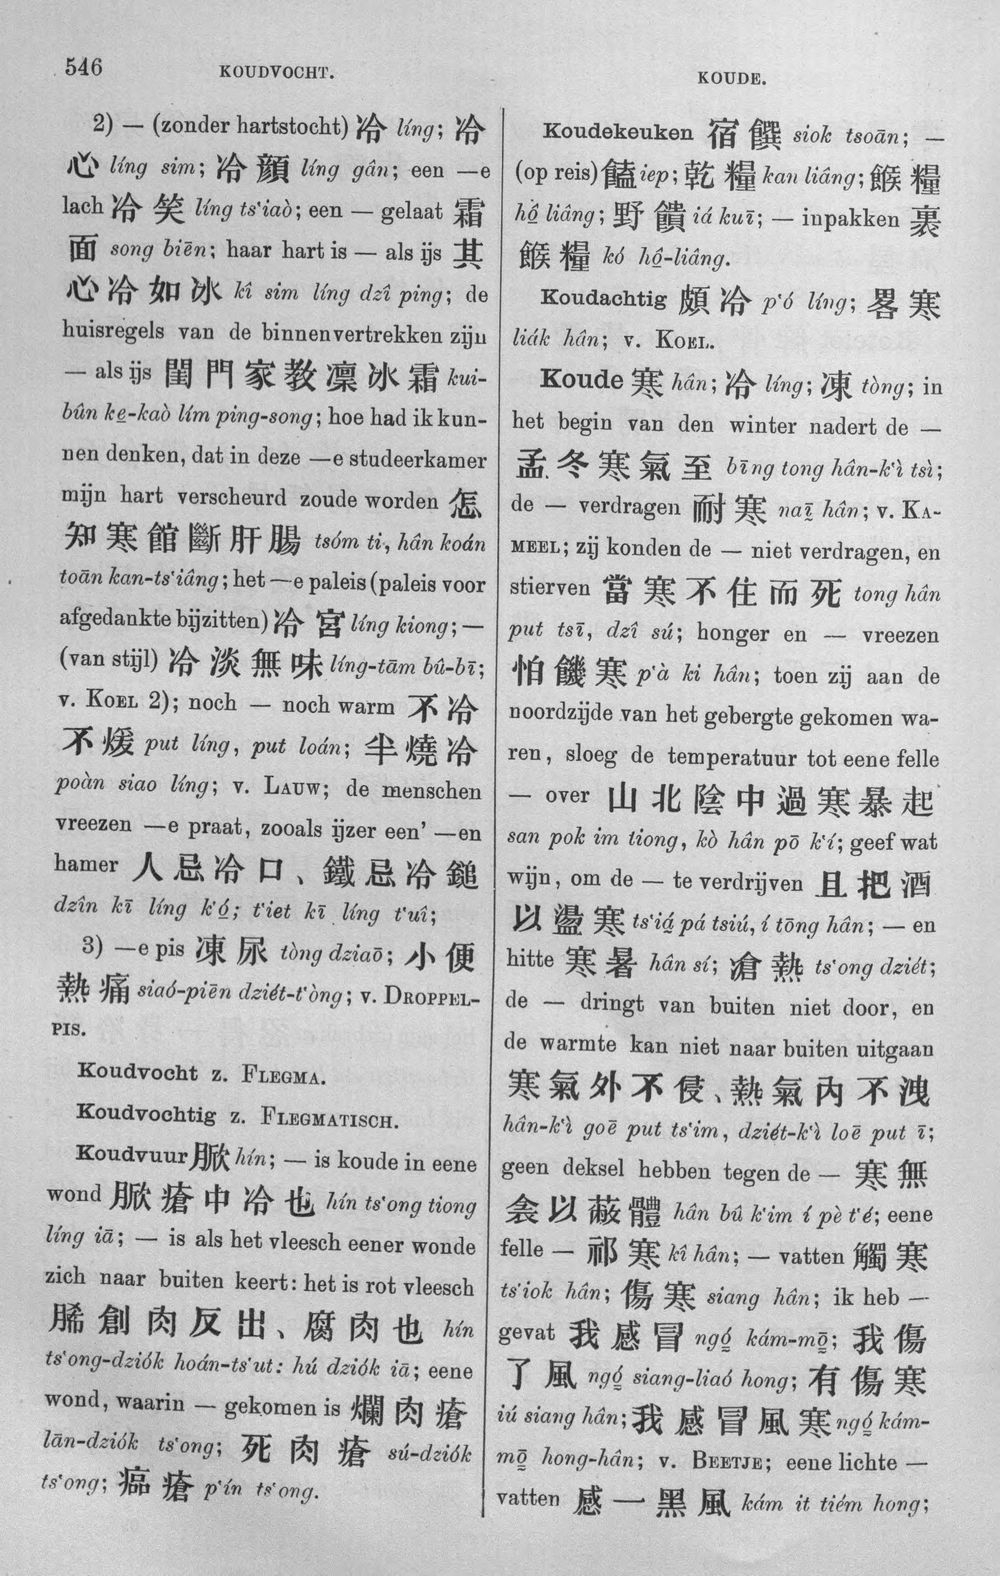 546
KOUDVOCHT.
2) — (zonder hartstocht) 冷 líng; 冷
心 líng sim; 冷顏 líng gân; een —e
lach 冷笑 líng ts‘iaò; een — gelaat 霜
面 song biēn; haar hart is — als ijs 其
心冷如冰 kî sim líng dzî ping; de
huisregels van de binnenvertrekken zijn
— als ijs 閨門家教凜冰霜 kui-
bûn ke̱-kaò lím ping-song; hoe had ik kun-
nen denken, dat in deze —e studeerkamer
mijn hart verscheurd zoude worden 怎
知寒館斷肝腸 tsóm ti, hân koán
toān kan-ts‘iâng; het —e paleis (paleis voor
afgedankte bijzitten) 冷宮 líng kiong; —
(van stijl) 冷淡無味 líng-tām bû-bī;
v. KOEL 2); noch — noch warm 不冷
不煖 put líng, put loán; 半燒冷
poàn siao líng; v. LAUW; de menschen
vreezen —e praat, zooals ijzer een’ —en
hamer 人忌冷口、鐵忌冷鎚
dzîn kī líng k‘ó̱; t‘iet kī líng t‘uî;
3) —e pis 凍尿 tòng dziaō; 小便
熱痛 siaó-piēn dziét-t‘òng; v. DROPPEL-
PIS.
Koudvocht z. FLEGMA.
Koudvochtig z. FLEGMATISCH.
Koudvuur 脪 hín; — is koude in eene
wond 脪瘡中冷也 hín ts‘ong tiong
líng iā; — is als het vleesch eener wonde
zich naar buiten keert: het is rot vleesch
脪創肉反出、腐肉也 hín
ts‘ong-dziók hoán-ts‘ut: hú dziók iā; eene
wond, waarin — gekomen is 爛肉瘡
lān-dziók ts‘ong; 死肉瘡 sú-dziók
ts‘ong; 瘑瘡 p‘ín ts‘ong.
KOUDE.
Koudekeuken 宿饌 siok tsoān; —
(op reis) 饁 iep; 乾糧 kan liâng; 餱糧
hô̱ liâng; 野饋 iá kuī; — inpakken 裹
餱糧 kó hô̱-liâng.
Koudachtig 頗冷 p‘ó líng; 畧寒
liák hân; v. KOEL.
Koude 寒 hân; 冷 líng; 凍 tòng; in
het begin van den winter nadert de —
孟冬寒氣至 bīng tong hân-k‘ì tsì;
de — verdragen 耐寒 naī hân; v. KA-
MEEL; zij konden de — niet verdragen, en
stierven 當寒不住而死 tong hân
put tsī, dzî sú; honger en — vreezen
怕饑寒 p‘à ki hân; toen zij aan de
noordzijde van het gebergte gekomen wa-
ren, sloeg de temperatuur tot eene felle
— over 山北陰中過寒暴起
san pok im tiong, kò hân pō k‘í; geef wat
wijn, om de — te verdrijven 且把酒
以盪寒 ts‘iá̱ pá tsiú, í tōng hân; — en
hitte 寒暑 hân sí; 滄熱 ts‘ong dziét;
de — dringt van buiten niet door, en
de warmte kan niet naar buiten uitgaan
寒氣外不侵、熱氣內不洩
hân-k‘ì goē put ts‘im, dziét-k‘ì loē put ī;
geen deksel hebben tegen de — 寒無
衾以蔽體 hân bû k‘im í pè t‘é; eene
felle — 祁寒 kî hân; — vatten 觸寒
ts‘iok hân; 傷寒 siang hân; ik heb —
gevat 我感冒 ngó̱ kám-mō̱; 我傷
了風 ngó̱ siang-liaó hong; 有傷寒
iú siang hân; 我感冒風寒 ngó̱ kám-
mō̱ hong-hân; v. BEETJE; eene lichte —
vatten 感一黑風 kám it tiém hong;